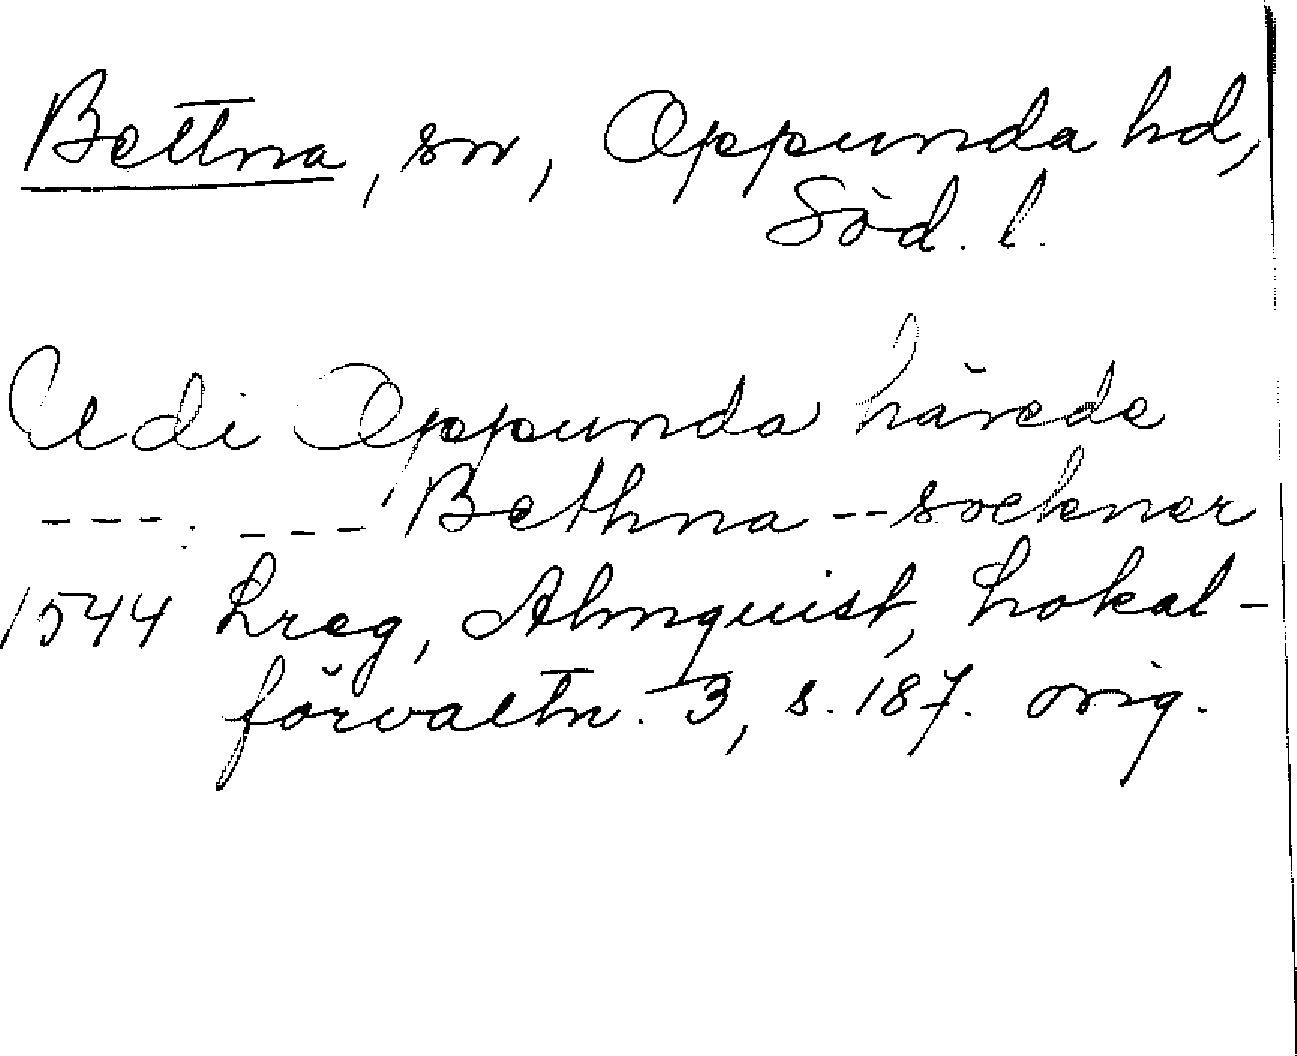 Bettna, sn, Oppunda hd,
Söd. l.
Udi Oppunda härede
---. --- Bethna -- sockner
1544 Lreg, Almquist, Lokal-
förvaltn. 3, s. 187. orig.